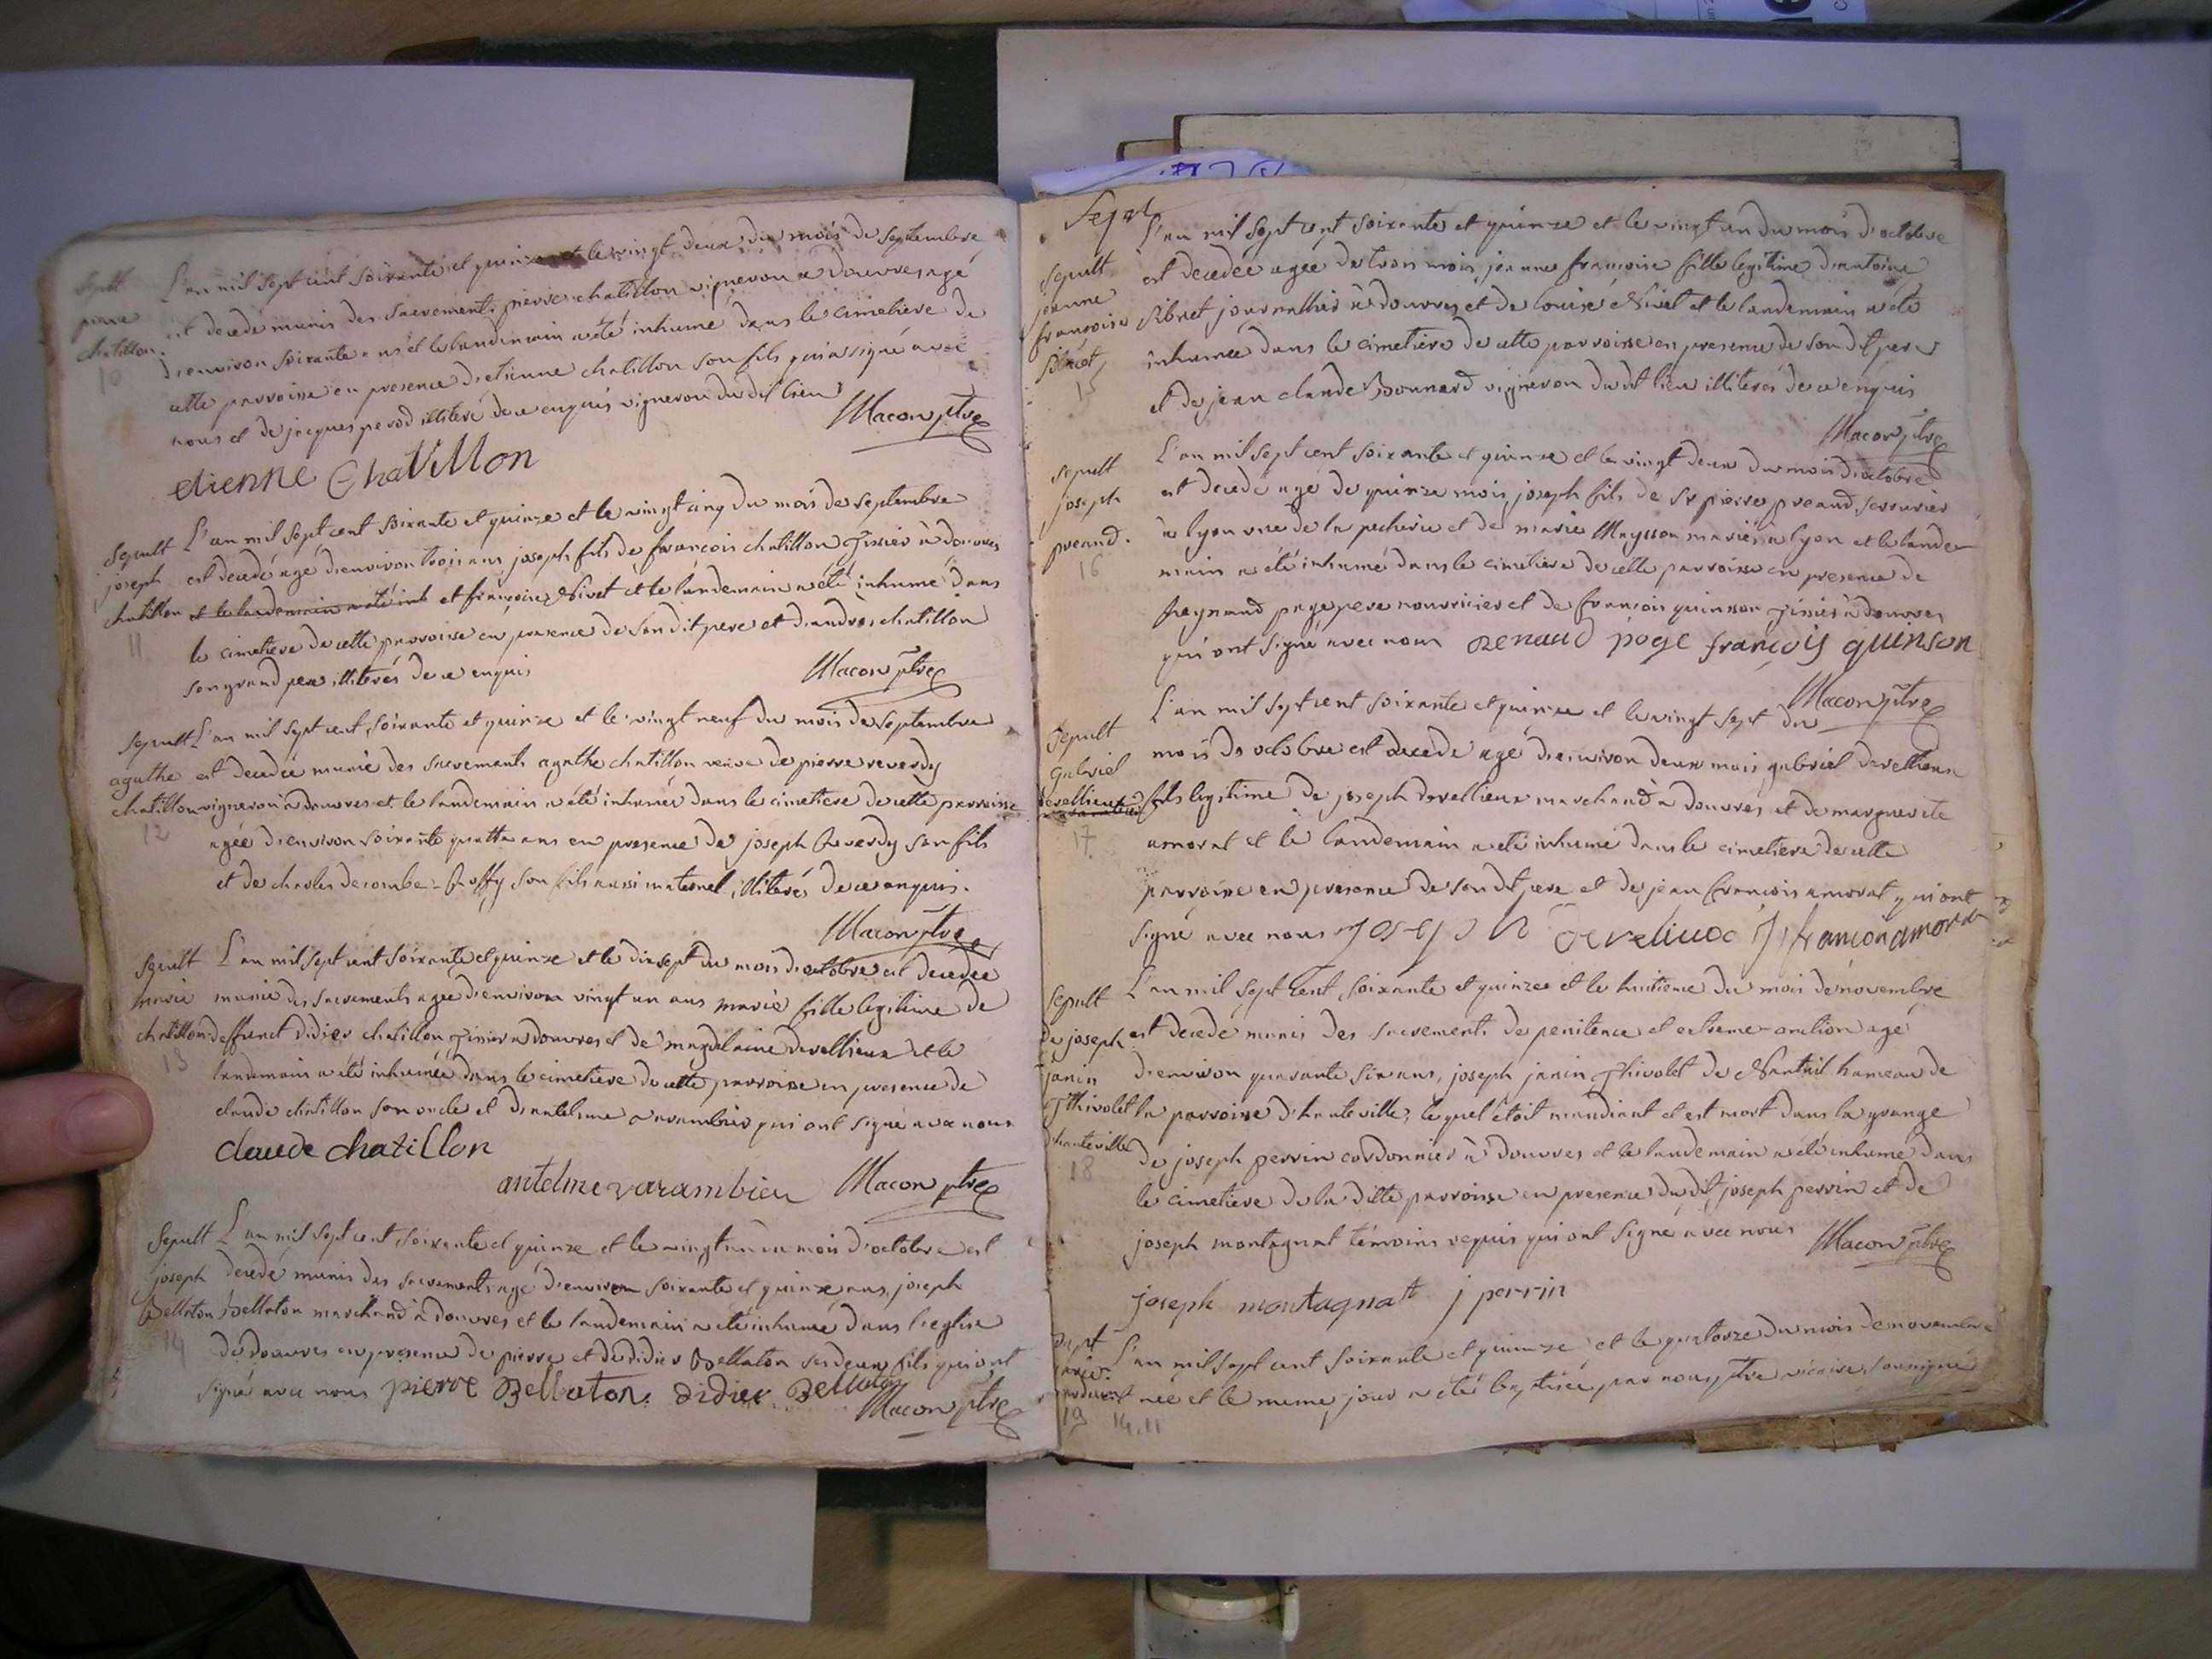 Sepult
pierre
chatillon.
10
L'an mil sept cent soixante et quinze et le vingt deux du mois de septembre
est decedé munis des sacrements pierre chatillon vigneron a douvres agé
d'environ soixante ans et le landemain a été inhumé dans le cimetiere de
cette parroisse en presence d'etienne chatillon son fils qui a signé avec
nous et de jacques perod illiteré de ce enquis vigneron dudit lieu
Macon ptre
etienne Chatillon
Sepult
joseph
chatillon
11
L'an mil sept cent soixante et quinze et le vingt cinq du mois de septembre
est decedé agé d'environ trois ans joseph fils de francois chatillon Tissier à douvres
et le landemain a été inh et francoise Nivet et le landemain a été inhumé dans
le cimetiere de cette parroisse en presence de son dit pere et d'andres chatillon
son grand pere illiterés de ce enquis
Macon ptre
Sepult
agathe
chatillon
12
L'an mil sept cent soixante et quinze et le vingt neuf du mois de septembre
est decedée munie des sacrements agathe chatillon veuve de pierre reverdy
vigneron à douvres et le landemain a été inhumée dans le cimetiere de cette parroisse
agée d'environ soixante quattre ans en presence de joseph Reverdy son fils
et de charles decombe-Roffy son fils aussi maternel, illiterés de ce enquis.
Macon ptre
Sepult
marie
chatillon
13
L'an mil sept cent soixante et quinze et le dixsept du mois d'octobre est decedée
munie des sacrements agée d'environ vingt un ans marie fille legitime de
deffunct didier chatillon Tissier a douvres et de magdelaine devellieux et le
landemain a été inhumée dans le cimetiere de cette parroisse en presence de
claude chatillon son oncle et d'antelme varambier qui ont signé avec nous
claude chatillon
antelme varambieu Macon ptre
Sepult
joseph
Bellaton
14
L'an mil sept cent soixante et quinze et le vingt un du mois d'octobre est
decedé munis des sacrements agé d'environ soixante et quinze ans, joseph
Bellaton marchand à douvres et le landemain a été inhumé dans l'eglise
de douvres en presence de pierre et de didier Bellaton ses deux fils qui ont
signé avec nous pierre Bellaton. didier Bellaton
Macon ptre
Sept
Sepult
jeanne
francoise
Sibuet
15
L'an mil sept cent soixante et quinze et le vingt un du mois d'octobre
est decedée agée de trois mois jeanne francoise fille legitime d'antoine
Sibuet journallier à douvres et de louise Nivet et le landemain a été
inhumée dans le cimetiere de cette parroisse en presence de son dit pere
et de jean claude Bonnard vigneron dudit lieu illiterés de ce enquis
Macon ptre
Sepult
joseph
preand.
16
L'an mil sept cent soixante et quinze et le vingt deux du mois d'octobre
est decedé agé de quinze mois joseph fils de Sr pierre preand serrurier
à lyon rue de la pecherie et de marie Maysson mariés à lyon et le lande-
main a été inhumé dans le cimetiere de cette parroisse en presence de
Reynaud page pere nourricier et de francois quinson Tissier à douvres
qui ont signé avec nous Renaud page françois quinson
Macon ptre
Sepult
gabriel
devellieux
17
L'an mil sept cent soixante et quinze et le vingt sept du
mois de octobre est decedé agé d'environ deux mois gabriel devellieux
fils legitime de joseph devellieux marchand à douvres et de marguerite
amorat et le landemain a été inhumé dans le cimetiere de cette
parroisse en presence de son dit pere et de jean francois amorat qui ont
signé avec nous Joseph develiux J francon amorat
Sepult
de joseph
janin
Thivolet
d'hauteville
18
L'an mil sept cent soixante et quinze et le huitieme du mois de novembre
est decedé munis des sacrements de penitence et extreme-onction agé
d'environ quarante six ans, joseph janin Thivolet de Nantuil hameau de
la parroisse d'hauteville, lequel étoit mendiant et est mort dans la grange
de joseph perrin cordonnier à douvres et le landemain a été inhumé dans
le cimetiere de la ditte parroisse en presence dudit joseph perrin et de
joseph montagnat témoins requis qui ont signé avec nous
Macon ptre
joseph montagnat j perrin
Bapt
19
14.11
L'an mil sept cent soixante et quinze et le quatorze du mois de novembre
est née et le meme jour a été baptisée par nous ptre vicaire soussigné